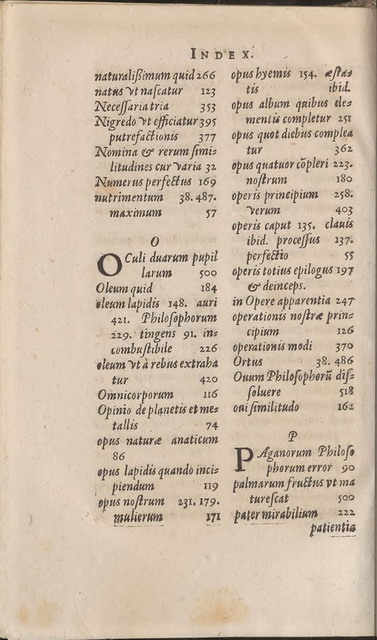 INDEX.
naturalißimum quid 266
natus vt nascatur 123
Necessaria tria 353
Nigredo vt efficiatur 395
putrefactionis 377
Nomina & rerum simi-
litudines cur varia 32
Numerus perfectus 169
nutrimentum 38. 487.
maximum 57
O
OCuli duarum pupil
larum 500
Oleum quid 184
oleum lapidis 148. auri
421. Philosophorum
229. tingens 91. in-
combustibile 226
oleum vt à rebus extraha
tur 420
Omnicorporum 116
Opinio de planetis et me-
tallis 74
opus naturæ anaticum
86
opus lapidis quando inci-
piendum 119
opus nostrum 231. 179.
mulierum 171
opus hyemis 154. æsta-
tis ibid.
opus album quibus ele-
mentis completur 251
opus quot diebus complea
tur 362
opus quatuor cõpleri 223.
nostrum 180
operis principium 258.
verum 403
operis caput 135. clauis
ibid. processus 137.
perfectio 55
operis totius epilogus 197
& deinceps.
in Opere apparentia 247
operationis nostræ prin-
cipium 126
operationis modi 370
Ortus 38. 486
Ouum Philosophorũ dis-
soluere 518
oui similitudo 162
P
PAganorum Philoso
phorum error 90
palmarum fructus vt ma
turescat 500
pater mirabilium 222
patientia